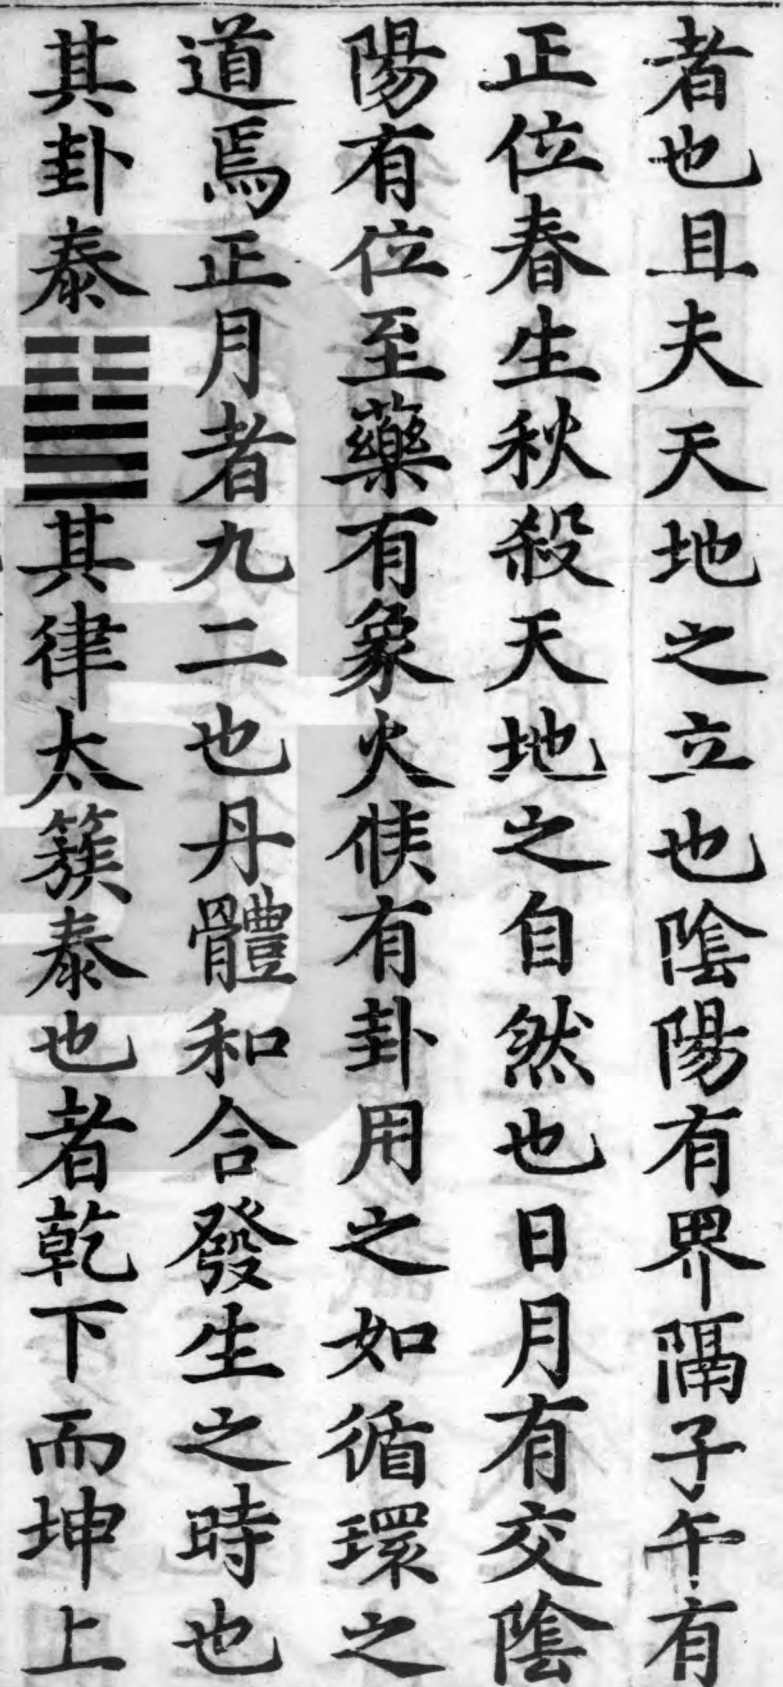 者也且夫天地之立也陰陽有界隔子午有
正位春生秋殺天地之自然也日月有交陰
陽有位至藥有象火候有卦用之如循環之
道焉正月者九二也丹體和合發生之時也
其卦泰䷊其律太簇泰也者乾下而坤上